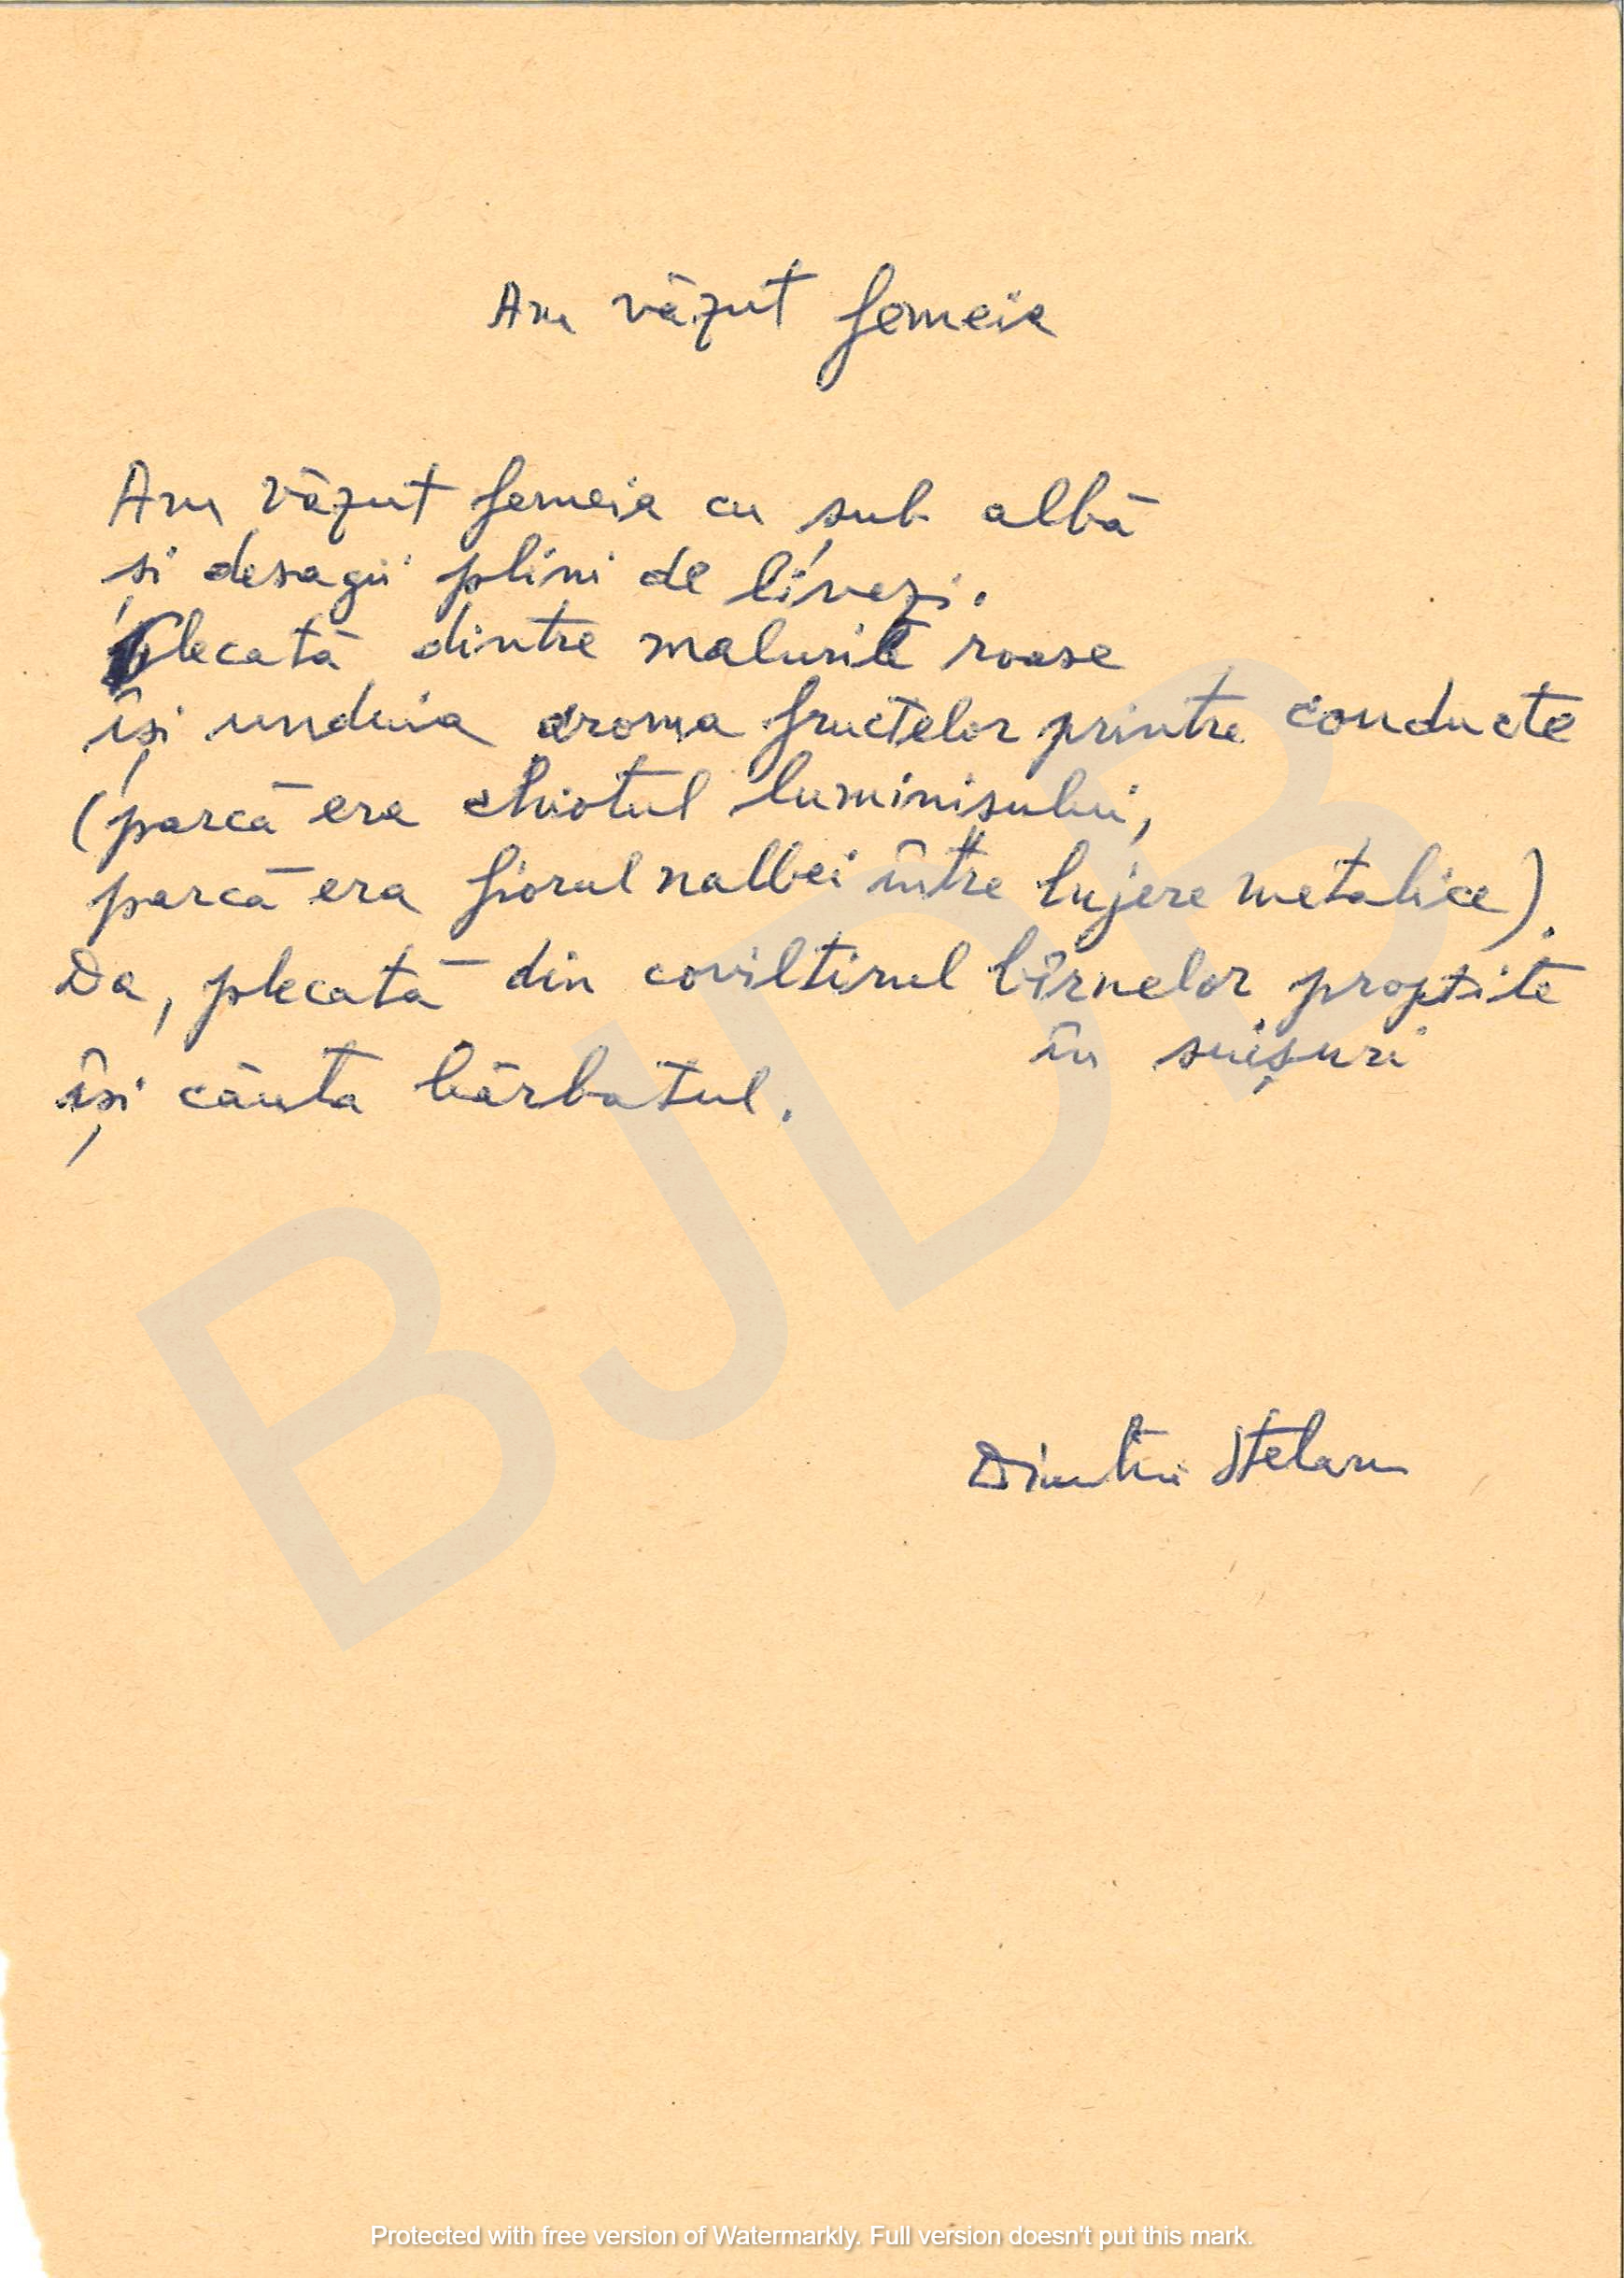 Am văzut femeia
Am văzut femeia cu șub albă
și desagii plini de livezi.
Plecată dintre malurile roase
își unduia aroma fructelor printre conducte
(parcă era chiotul luminișului,
parcă era fiorul nalbei între lujere metalice).
Da, plecată din coviltirul bîrnelor proptite
în suișuri
își căuta bărbatul.
Dimitrie Stelaru
BJDB
Protected with free version of Watermarkly. Full version doesn't put this mark.